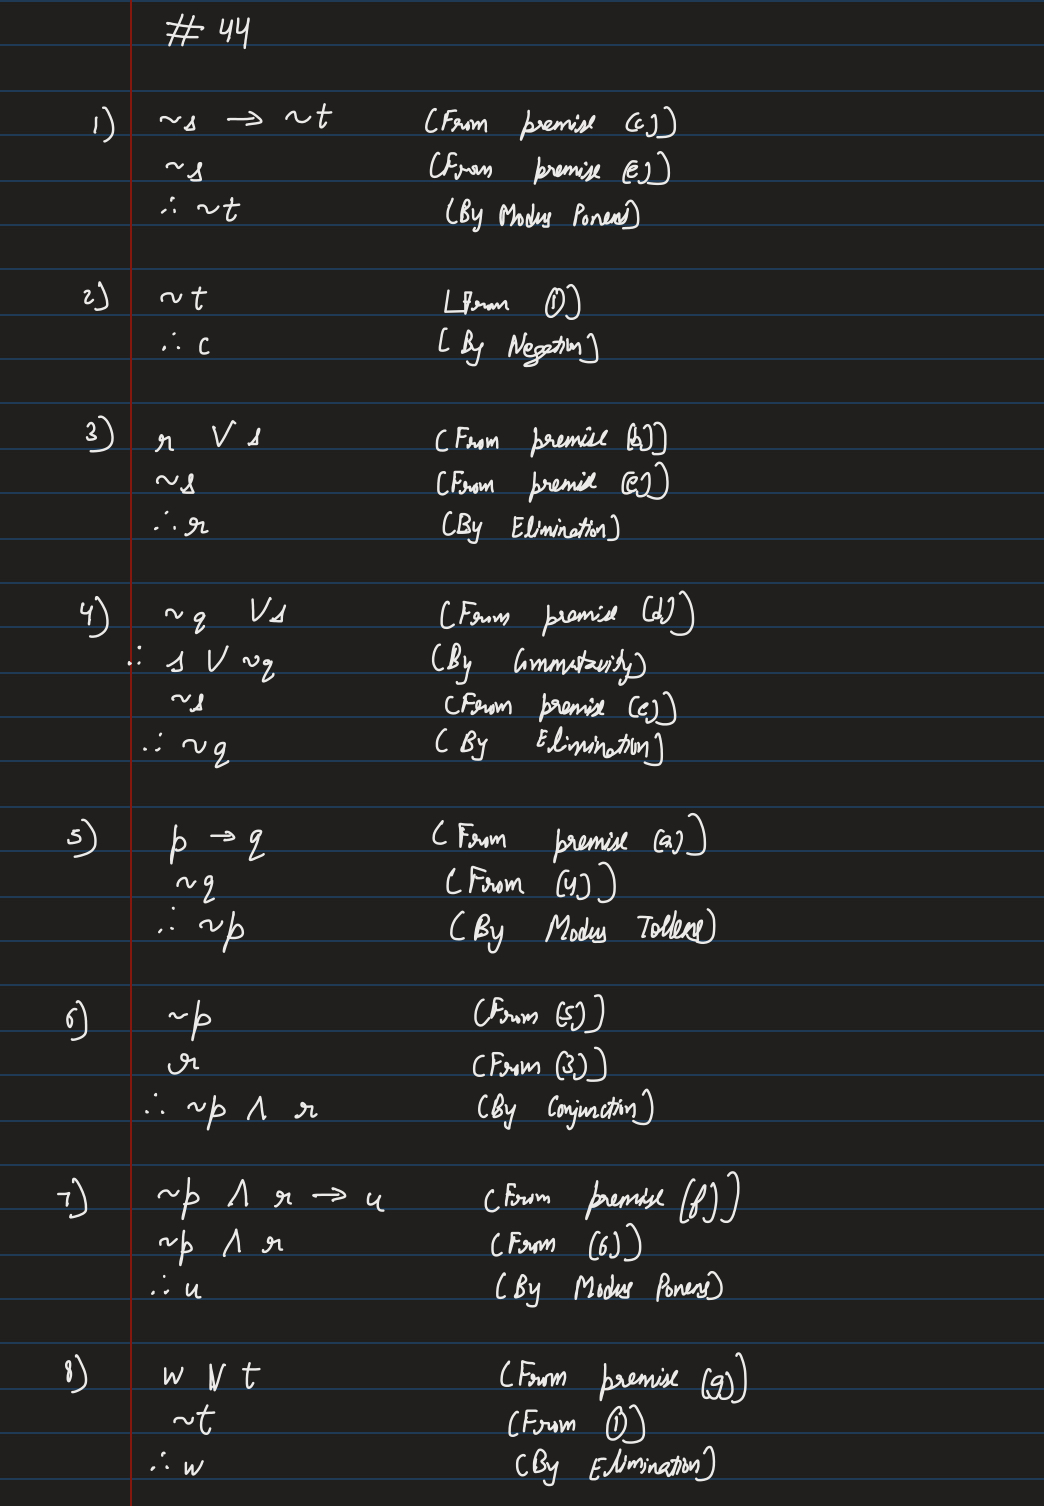 # 44
1) ~s → ~t (From premise (c))
~s (From premise (e))
∴ ~t (By Modus Ponens)
2) ~t (From ①)
∴ c (By Negation)
3) r V s (From premise (b))
~s (From premise (e))
∴ r (By Elimination)
4) ~q V s (From premise (d))
∴ s V ~q (By Commutavity)
~s (From premise (e))
∴ ~q (By Elimination)
5) p → q (From premise (a))
~q (From (4))
∴ ~p (By Modus Tollens)
6) ~p (From (5))
r (From (3))
∴ ~p Λ r (By Conjunction)
7) ~p Λ r → u (From premise (f))
~p Λ r (From (6))
∴ u (By Modus Ponens)
8) w V t (From premise (g))
~t (From ①)
∴ w (By Elimination)